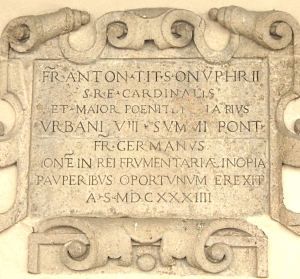 FR·ANTON·TIT·S·ONVPHRII
S·R·E·CARDINALIS
ET·MAIOR POENIT
VRBANI VIII·SVM PONT
FR·GERMANVS
IN REI FRVMENTARIÆ INOPIA
PAVPERIBVS OPORTVNVM EREXIT
A·S·MDCXXXIIII